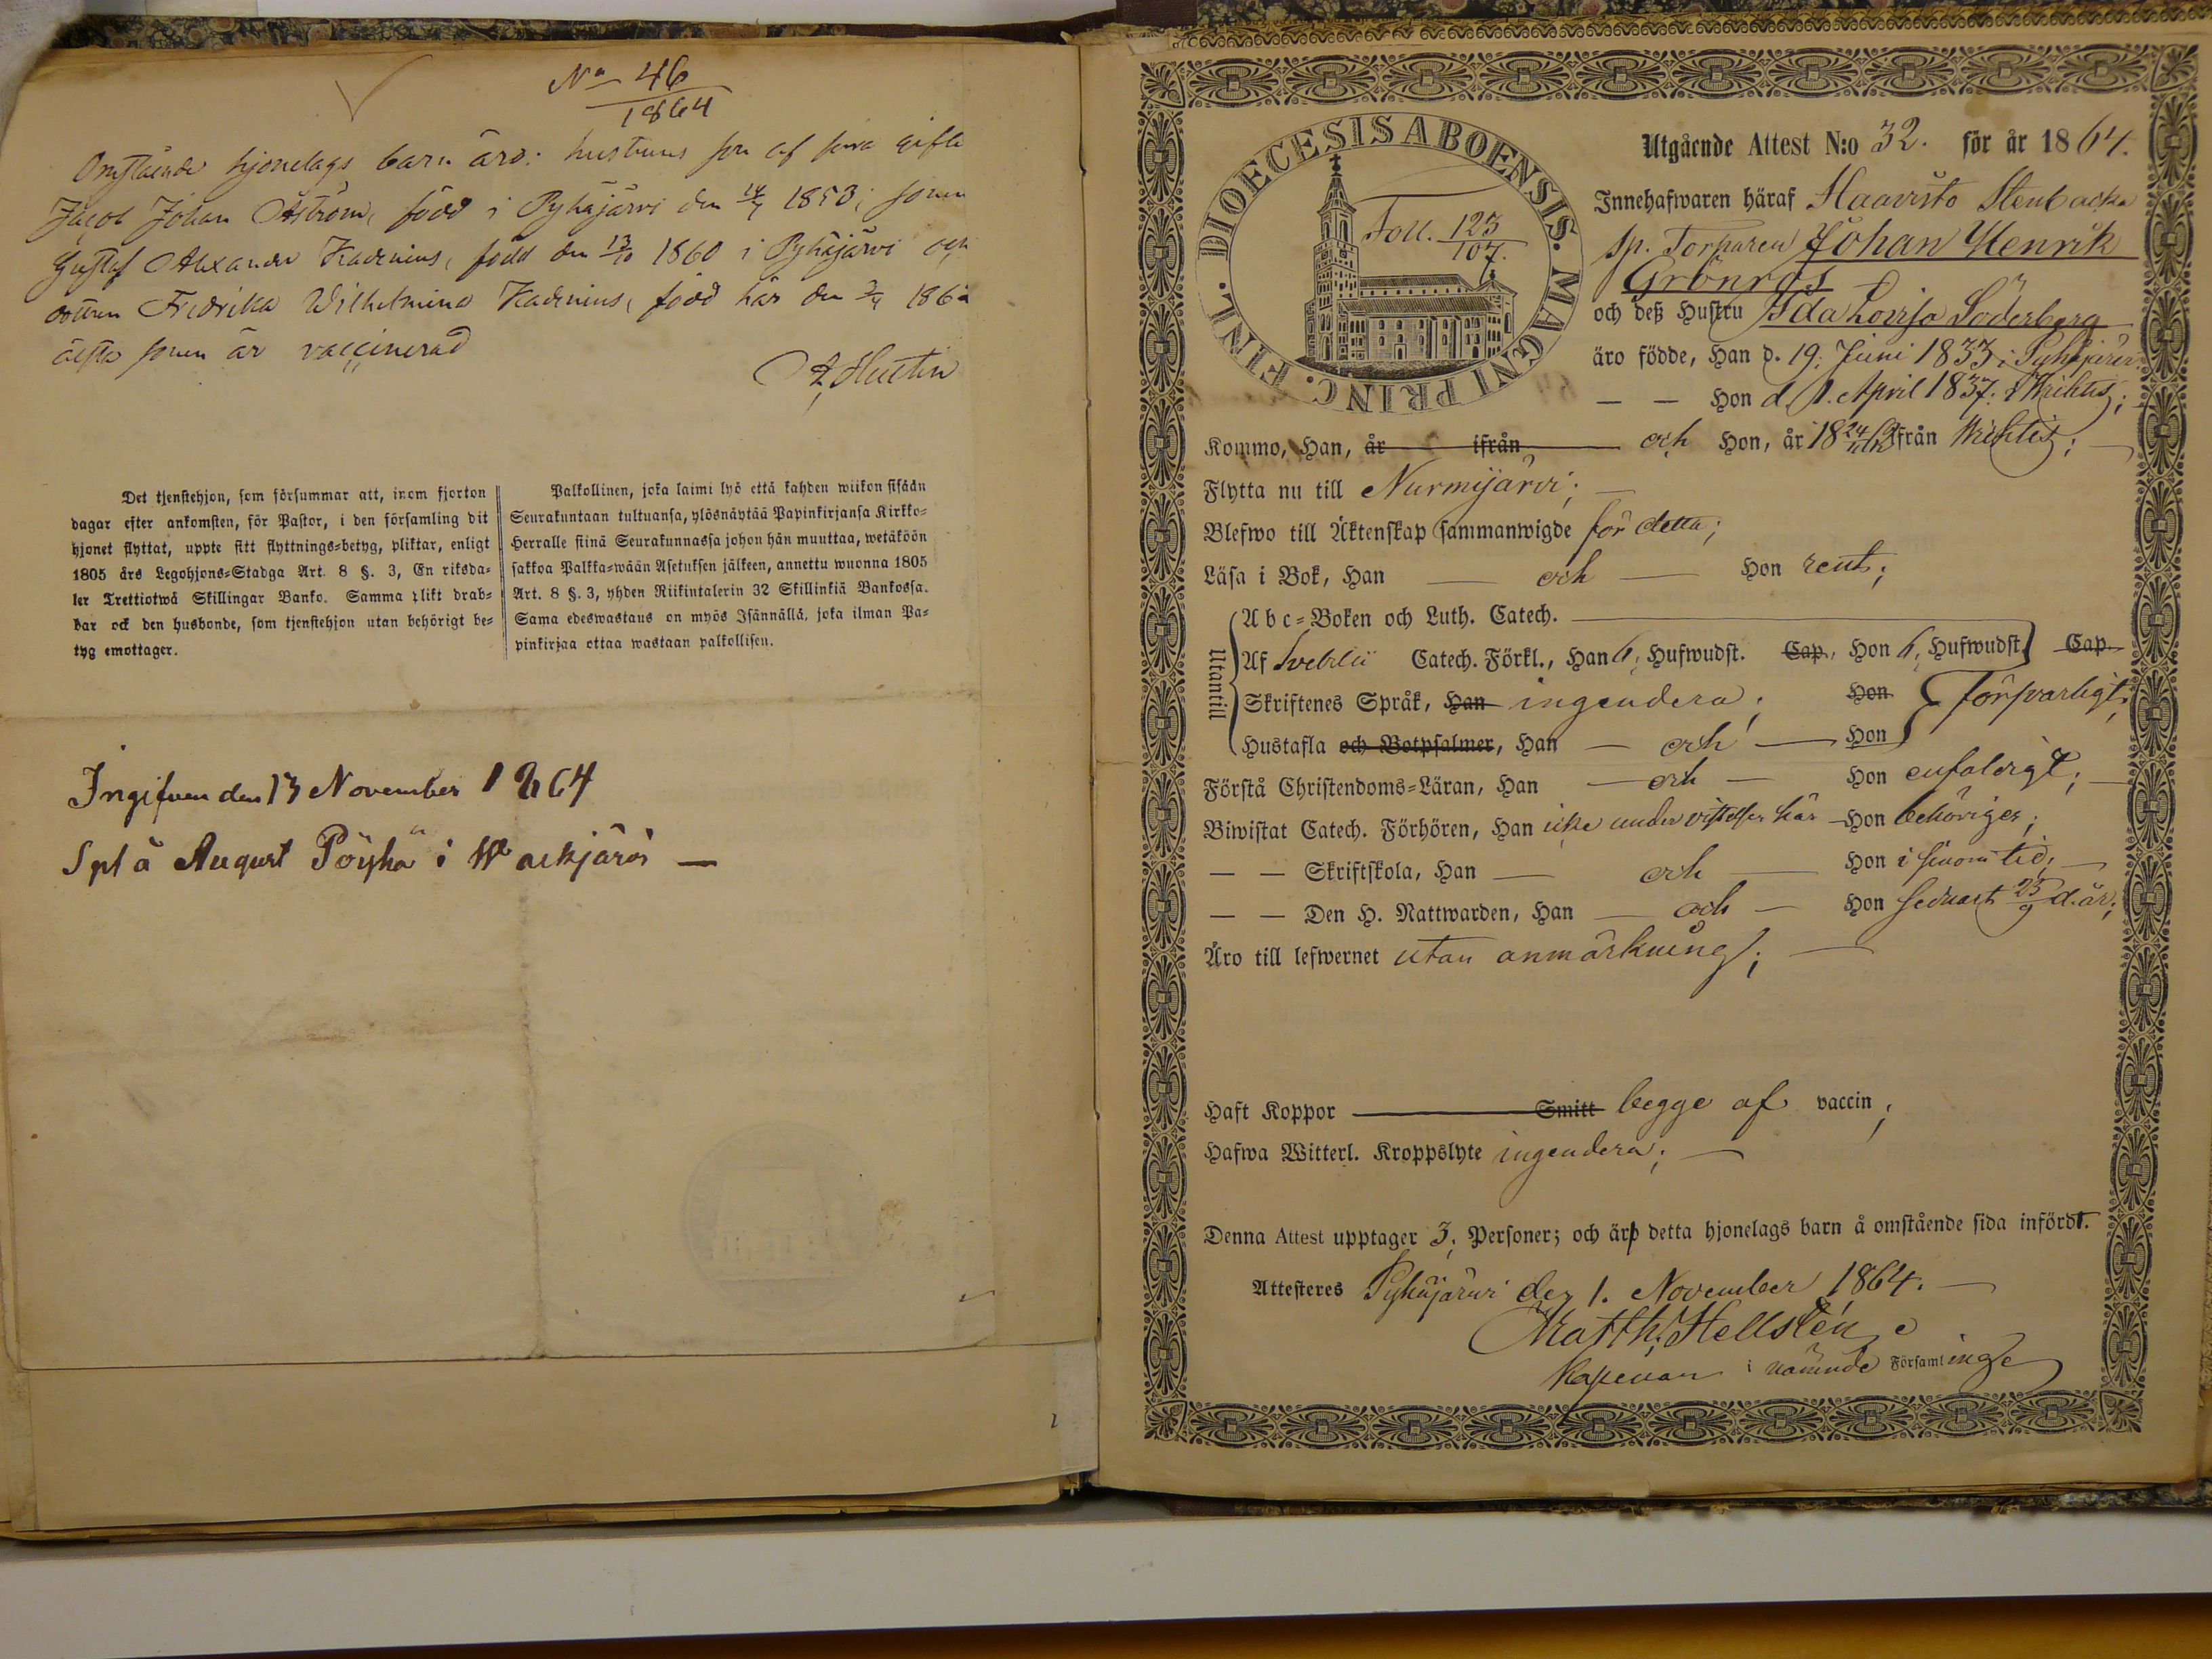 No 46
1864
Omstående hjonelags barn äro: hustruns son af förra gifte
Jacob Johan Åström, född i Pyhäjärvi den 14/7 1853; sonen
Gustaf Alexander Kadenius, född den 13/10 1860 i Pyhäjärvi och
dottren Fredrika Wilhelmina Kadenius, född här den
äldsta sonen är vaccinerad
Det tjenstehjon, som försummar att, inom fjorton
dagar efter ankomsten, för Pastor, i den församling dit
hjonet flyttat, uppte sitt flyttnings-betyg, pliktar, enligt
1805 års Legohjons-Stadga Art. 8 §. 3, En riksda-
ler Trettiotwå Skillingar Banko. Samma plikt drab-
bar ock den husbonde, som tjenstehjon utan behörigt be-
tyg emottager.
Palkollinen, joka laimi lyö että kahden wiikon sisään
Seurakuntaan tultuansa, ylösnäytää Papinkirjansa Kirkko-
Herralle siinä Seurakunnassa johon hän muuttaa, wetäköön
sakkoa Palkka-wään Asetuksen jälkeen, annettu wuonna 1805
Art. 8 §. 3, yhden Riikintalerin 32 Skillinkiä Bankossa.
Sama edeswastaus on myös Isännällä, joka ilman Pa-
pinkirjaa ottaa wastaan palkollisen.
Ingifven den 13 November 1864
Spl å August Pöyhä i Wackjärvi —
DIOECESIS ABOENSIS. MAGNI PRINC. FINL.
Foll. 123/107.
Utgående Attest N:o 32. för år 1864.
Innehafwaren häraf Haavisto Stenbacka
sp. Torparen Johan Henrik
Grönros
och deß Hustru Ida Lovisa Söderberg
äro födde, Han d. 19. Juni 1833 i Pyhäjärvi
— — Hon d. 1. April 1837. i Wichtis;
Kommo, Han, år ifrån och Hon, år 18 från Wichtis;
Flytta nu till Nurmijärvi;
Blefwo till Äktenskap sammanwigde för detta;
Läsa i Bok, Han — och — Hon rent;
Utantill
Abc-Boken och Luth. Catech.
Af Svebilii Catech. Förkl., Han 6, Hufwudst. Cap., Hon 6, Hufwudst. Cap.
Skriftenes Språk, Han ingendera; Hon försvarligt;
Hustafla och Botpsalmer, Han — och — Hon
Förstå Christendoms-Läran, Han — och — Hon enfaldigt;
Biwistat Catech. Förhören, Han icke under vistelsen här Hon behörigen;
— — Skriftskola, Han — och — Hon i sinom tid;
— — Den H. Nattwarden, Han — och — Hon sednast 25/9 d. år;
Äro till lefwernet utan anmärkning;
Haft Koppor Smitt begge af vaccin;
Hafwa Witterl. Kroppslyte ingendera;
Denna Attest upptager 3, Personer; och äro detta hjonelags barn å omstående sida infördt.
Attesteres Pyhäjärvi den 1. November 1864.
Matth. Hellstén
Kapellan i nämnde Församlinge